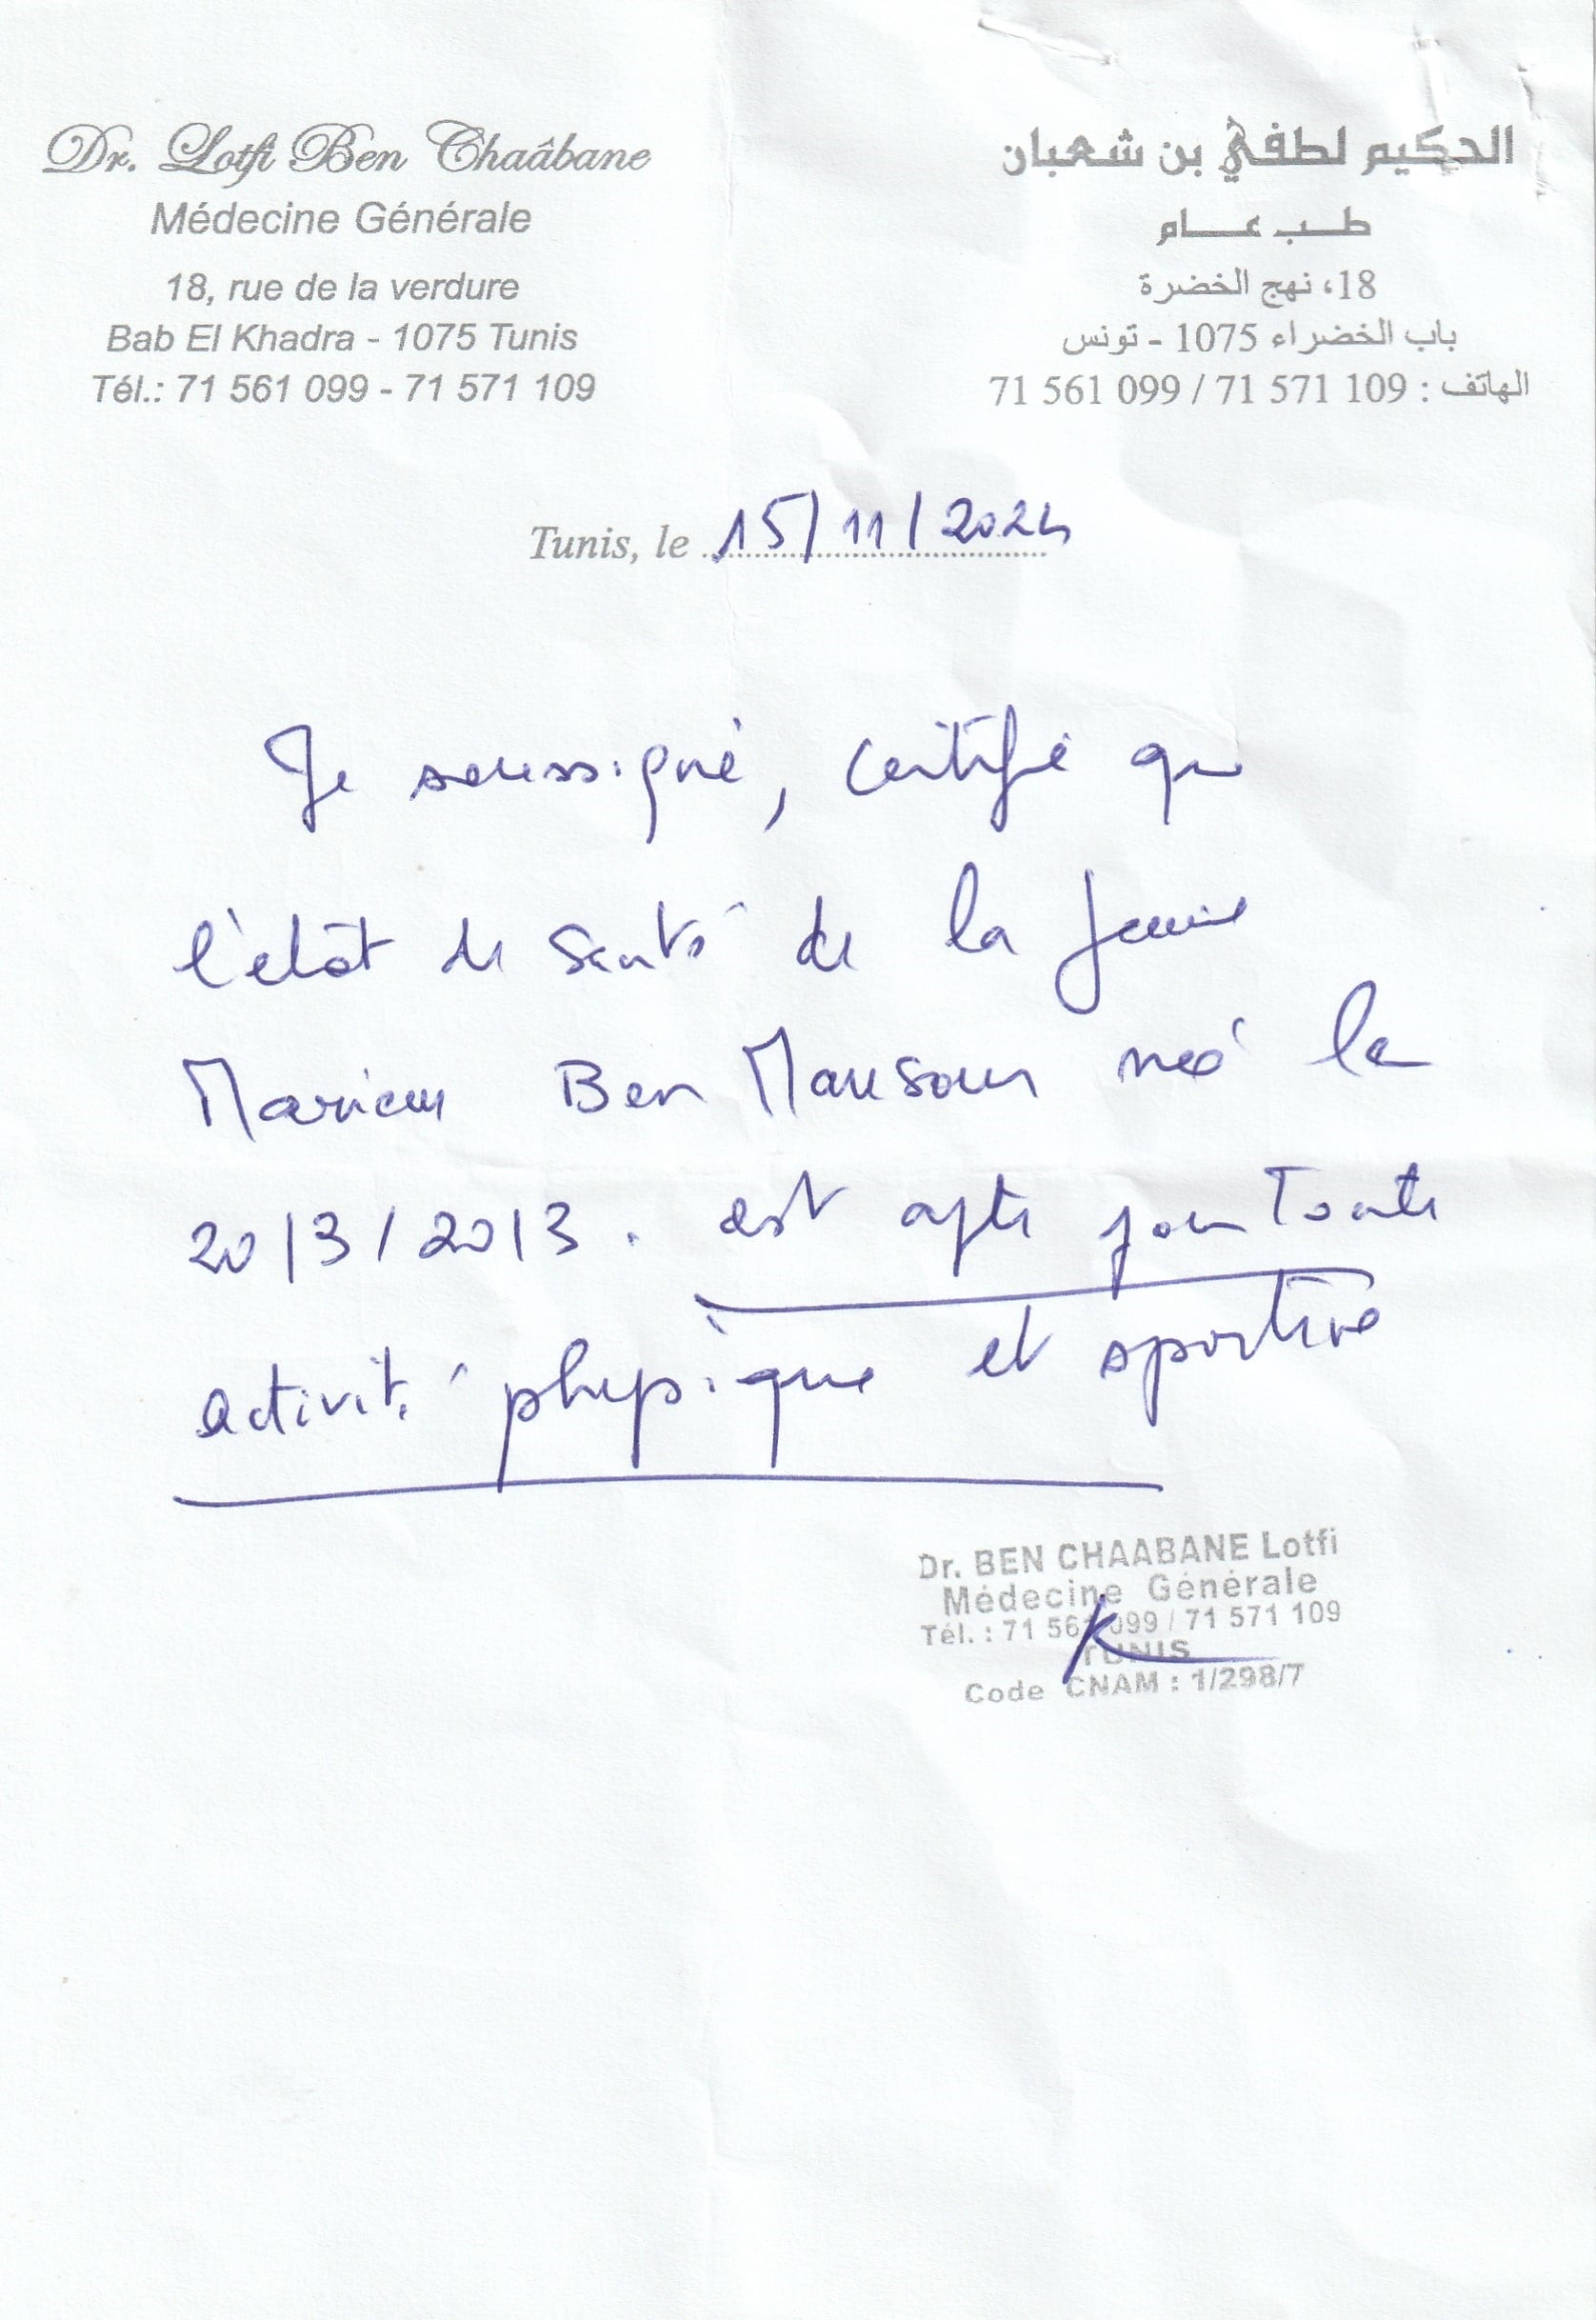 Dr. Lotfi Ben Chaâbane
Médecine Générale
18, rue de la verdure
Bab El Khadra - 1075 Tunis
Tél.: 71 561 099 - 71 571 109
الحكيم لطفي بن شعبان
طب عام
18، نهج الخضرة
باب الخضراء 1075 - تونس
الهاتف : 109 571 71 / 099 561 71
Tunis, le 15/11/2024
Je soussigné, certifie que
l'état de santé de la jeune
Mariem Ben Mansour née le
20/3/2013. est apte pour Toute
activité physique et sportive
Dr. BEN CHAABANE Lotfi
Médecine Générale
Tél. : 71 561 099 / 71 571 109
TUNIS
Code CNAM : 1/298/7